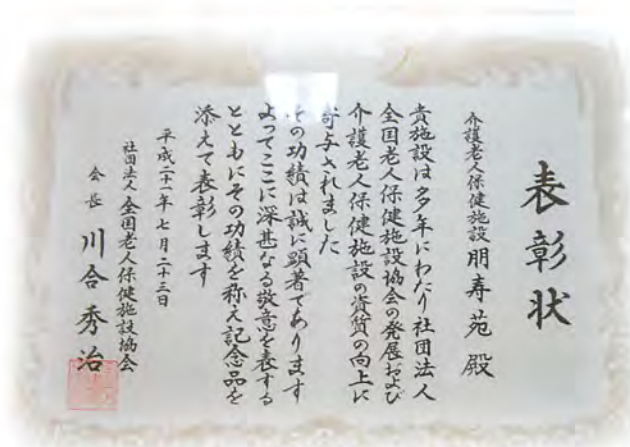 表彰状
介護老人保健施設 朋寿苑 殿
貴施設は多年にわたり社団法人
全国老人保健施設協会の発展および
介護老人保健施設の資質の向上に
寄与されました
その功績は誠に顕著であります
よってここに深甚なる敬意を表する
とともにその功績を称え記念品を
添えて表彰します
平成二十一年七月二十三日
社団法人 全国老人保健施設協会
会長 川合秀治